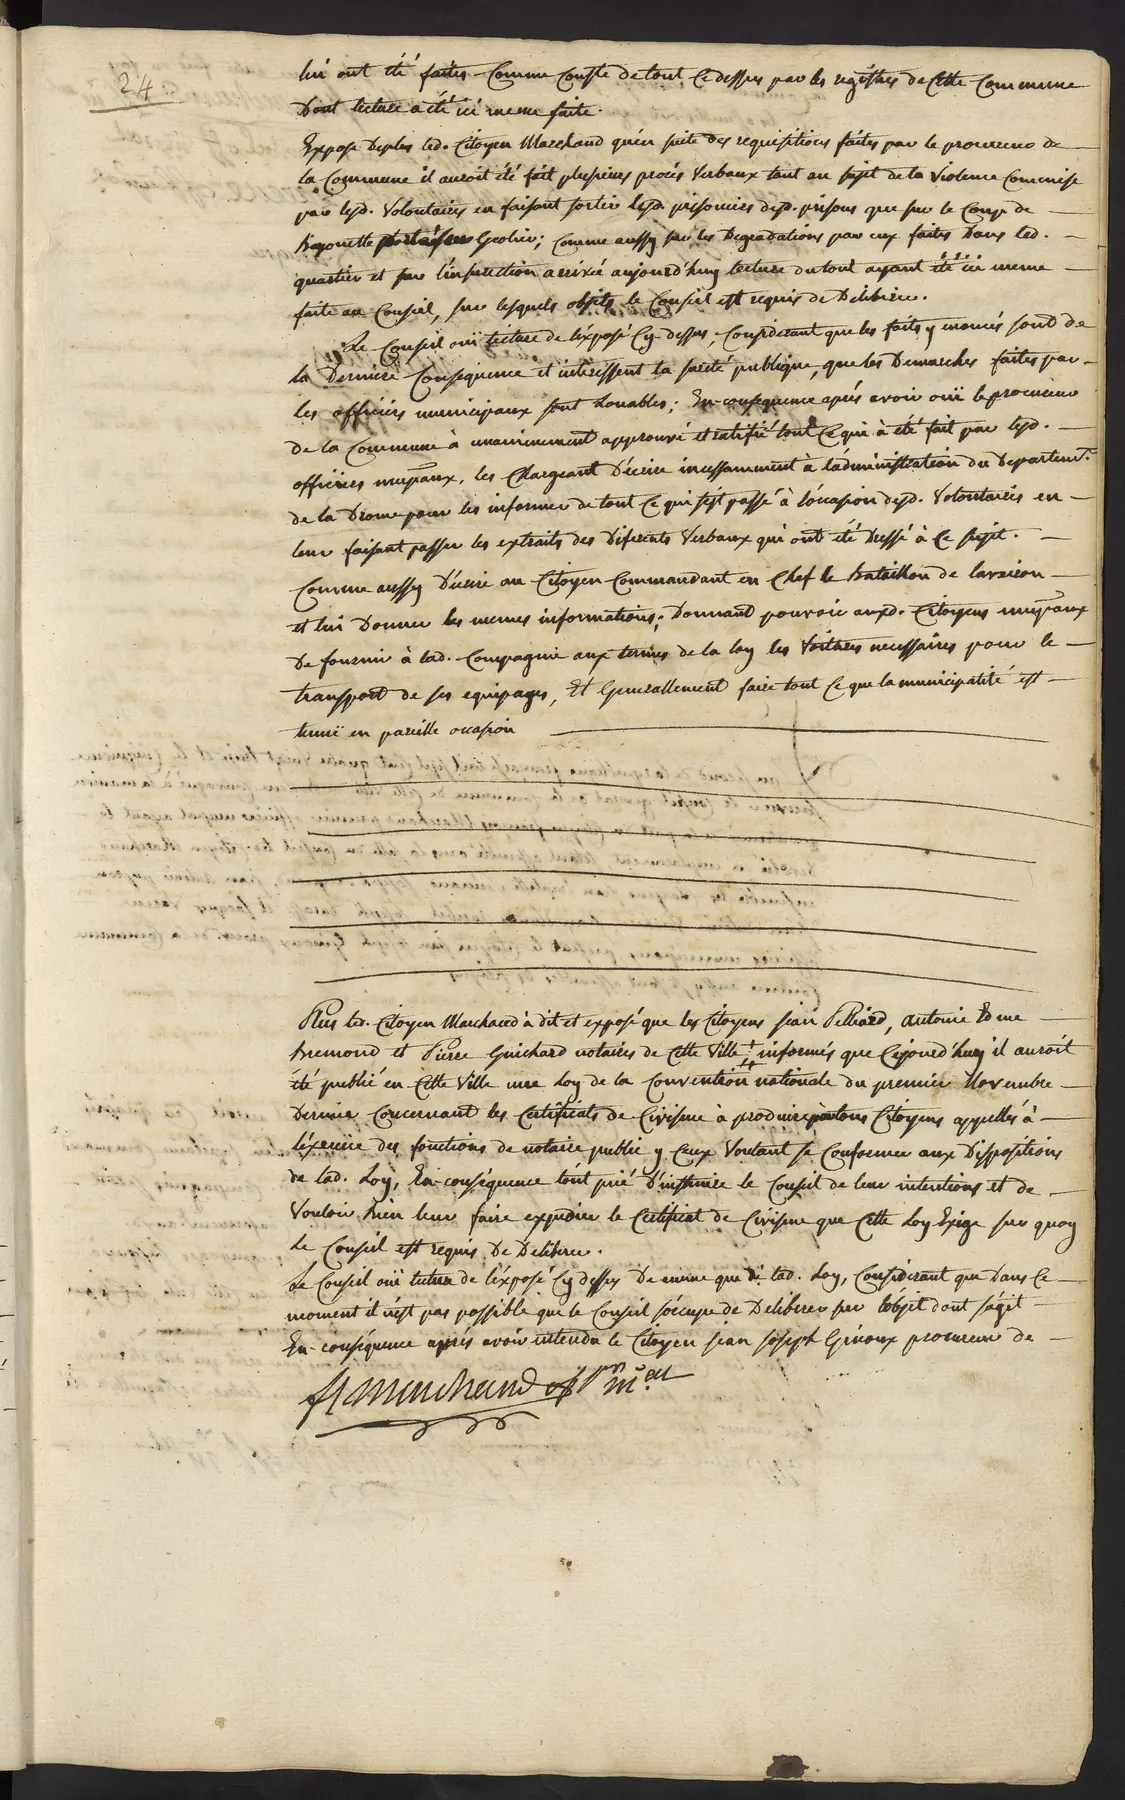 24
lui ont été faites Comme Conste de tout Ce dessus par les registres de Cette Commune
Dont lecture a été ici meme faite.
Expose Deplus led. Citoyen Marchand qu'en suite des requisitions faites par le procureur de
la Commune il auroit été fait plusieurs procés Verbaux tant au sujet de la Violence Commise
par lesd. Volontaires en faisant sortir lesd. prisoniers desd. prisons que sur le Coup de
bayonette porté Geolier; Comme aussy sur les Degradations par eux faites Dans led.
quartier et sur l'insurection arrivée aujourd'huy lecture du tout ayant été ici meme
faite au Conseil, sur lesquels objets le Conseil est requis de Deliberer.
Le Conseil oüi lecture de l'éxposé Cy dessus, Considerant que les faits y énoncés sont de
la Derniere Consequence et interessent la sureté publique, que les Demarches faites par
les officiers municipaux sont Louables; En consequence aprés avoir oüi le procureur
de la Commune à unanimement approuvé et ratifié tout Ce qui à été fait par lesd.
officiers mupaux, les Chargeant D'écrire incessamment à l'administration du Departemt.
de la Drome pour les informer de tout Ce qui s'est passé à l'occasion desd. Volontaires en
leur faisant passer les extraits des Diferents Verbaux qui ont été Dressé à Ce sujet.
Comme aussy D'écrire au Citoyen Commandant en Chef le bataillon de
et lui Donner les memes informations; Donnant pouvoir auxd. Citoyens mupaux
De fournir à lad. Compagnie aux termes de la loy les Voitures necessaires pour le
transport de ses equipages, Et Generallement faire tout Ce que la municipalité est
tenuë en pareille occasion
Plus led. Citoyen Marchand à dit et exposé que les Citoyens Jean Pelliard, antoine Edme
bremond et Pierre Guichard notaires de Cette Ville informés que Cejourd'huy il auroit
été publié en Cette Ville une Loy de la Convention nationale du premier Novembre
Dernier Concernant les Certificats de Civisme à produire par tous Citoyens appellés à
l'éxercice des fonctions de notaire public y Ceux Voulant se Conformer aux Dispositions
de lad. Loy, En conséquence l'ont prié D'instruire le Conseil de leur intentions et de
Vouloir bien leur faire expedier le Certificat de Civisme que Cette Loy Exige sur quoy
Le Conseil est requis De Deliberer.
Le Conseil oüi lecture de l'éxposé Cy dessus De meme que de lad. Loy, Considerant que Dans Ce
moment il n'est pas possible que le Conseil s'occupe de Deliberer sur l'objet dont s'agit
En conséquence aprés avoir entendu le Citoyen Jean Joseph Giroux procureur de
marchand